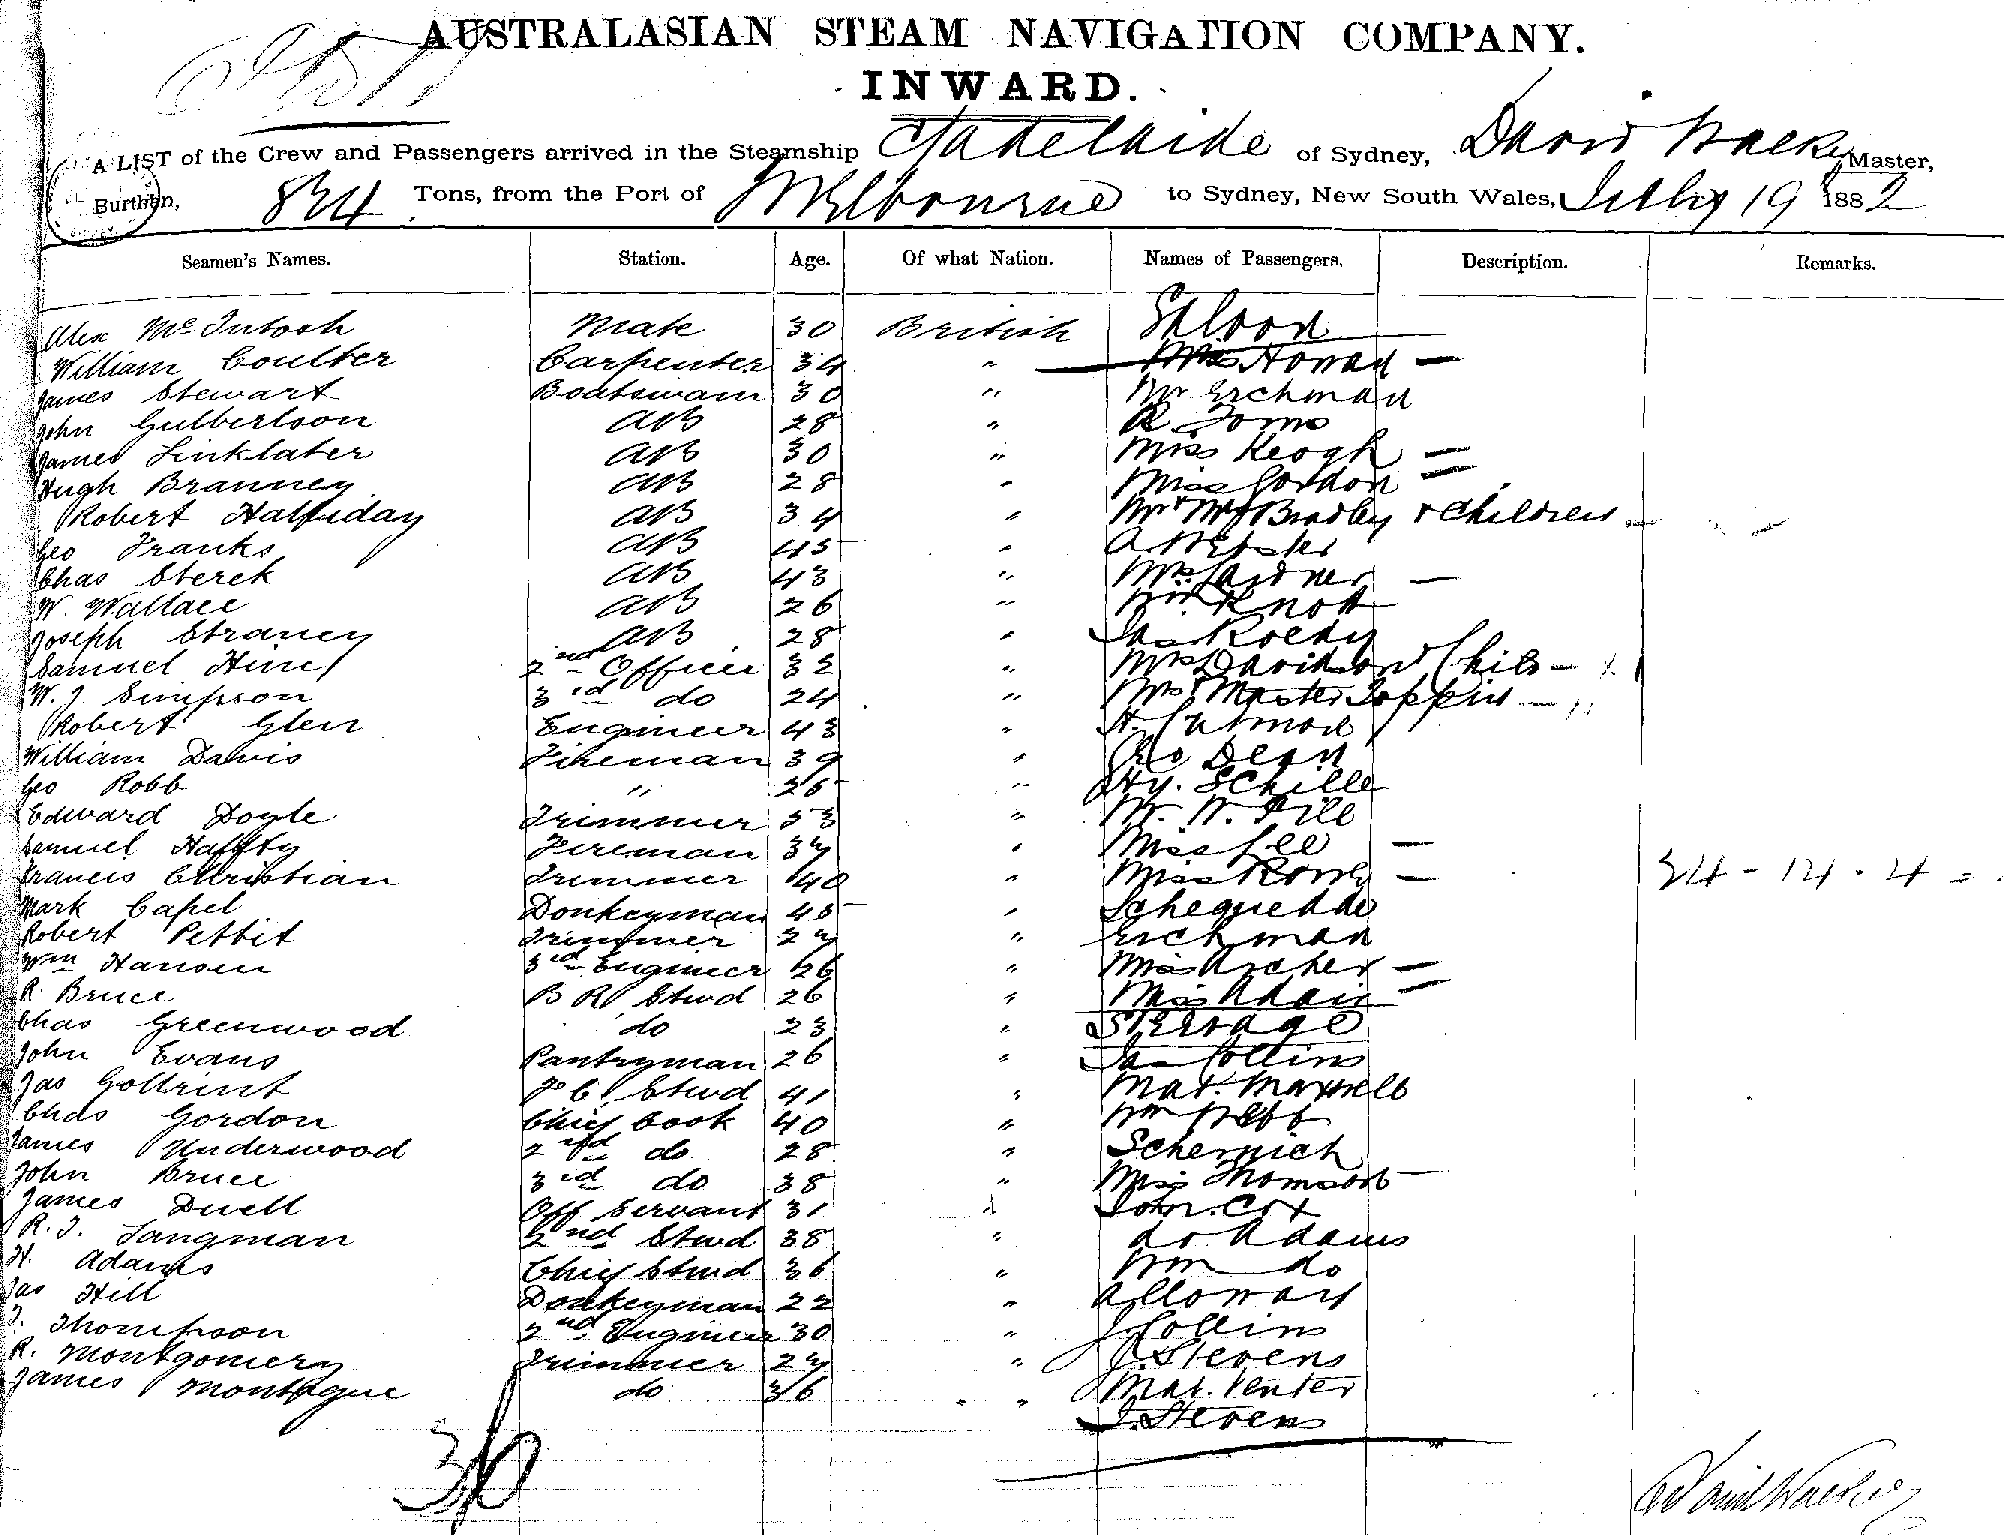 AUSTRALASIAN STEAM NAVIGATION COMPANY.
INWARD.
A LIST of the Crew and Passengers arrived in the Steamship Adelaide of Sydney, David Walker Master,
Burthen, 834 Tons, from the Port of Melbourne to Sydney, New South Wales, July 19 1882
Seamen's Names. Station. Age. Of what Nation. Names of Passengers. Description. Remarks.
Alex McIntosh Mate 30 British Saloon
William Coulter Carpenter 34 " Howard
James Stewart Boatswain 30 " Mr Erchman
John Gulbertson AB 28 " R Toms
James Linklater AB 30 " Miss Keogh
Hugh Branney AB 28 " Miss Gordon
Robert Halliday AB 34 " Mr & Mrs Bradley & Children
Geo Franks AB 45 " A Webster
Chas Sterck AB 43 " Mrs Gardner
W. Wallace AB 26 " Knott
Joseph Straney AB 28 " Jas Roedy
Samuel Hine 2nd Officer 32 " Mrs Davidson & Child
W. J. Simpson 3rd do 24 " Mrs & Master Toppin
Robert Glen Engineer 43 " H.
William Davis Fireman 39 " Geo Dean
Geo Robb " 26 " Hy. Schille
Edward Doyle Trimmer 53 " W. W. Hill
Samuel Haffty Fireman 37 " Miss Lee
Francis Christian Trimmer 40 " Miss
Mark Capel Donkeyman 45 "
Robert Pettit Trimmer 27 " Erichman
Wm Hansen 3rd Engineer 26 " Miss Archer
R Bruce B R Stwd 26 " Miss Adair
Chas Greenwood do 23 " Steerage
John Evans Pantryman 26 " Jas Collins
Jas Gottrint F C Stwd 41 " Mat. Maxwell
Chas Gordon Chief Cook 40 " Wm Webb
James Underwood 2nd do 28 "
John Bruce 3rd do 38 " Miss Thomson
James Duell Off Servant 31 " Cox
R. J. Langman 2nd Stwd 38 " do Adams
H. Adams Chief Stwd 36 " Wm do
Jas Hill Donkeyman 22 " Alloway
T. Thompson 2nd Engineer 30 " J Collins
R. Montgomery Trimmer 27 " J. Stevens
James Montague do 36 " Mat. Venter
J. Stevens
David Walker